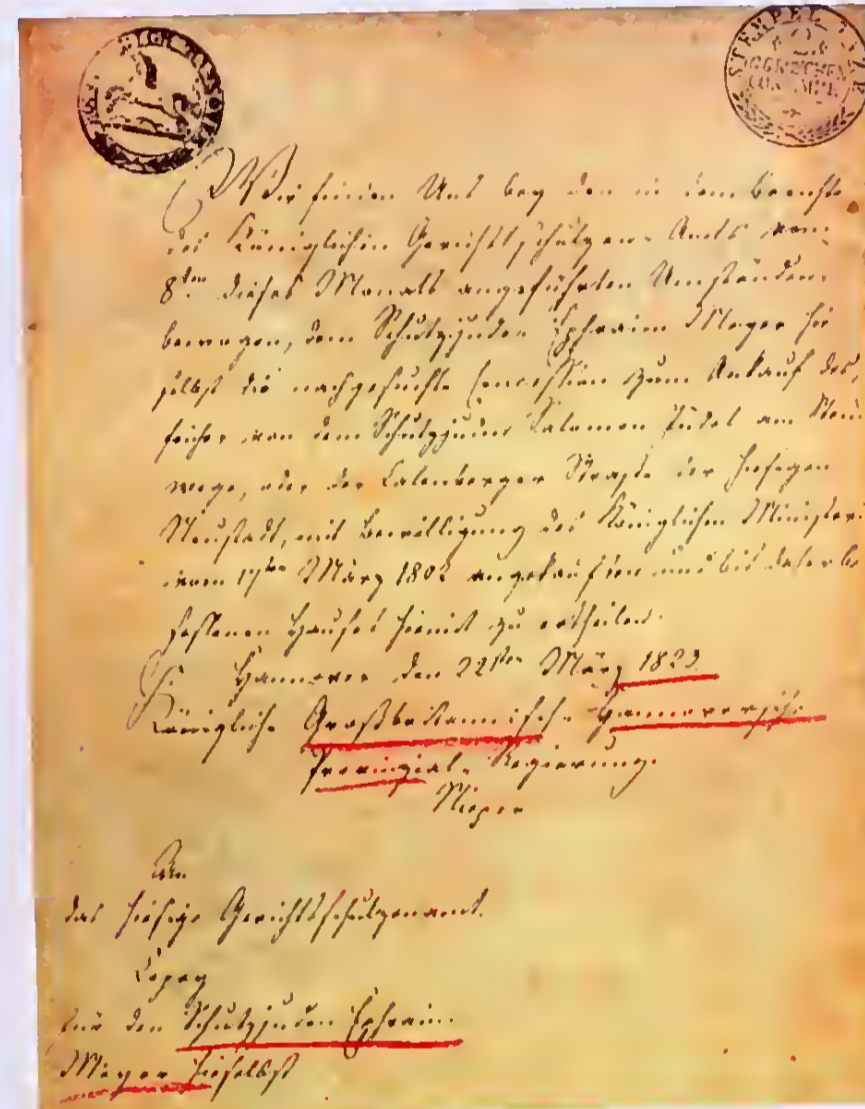 STEMPEL
2
Wir finden Uns bey den in dem Berichte
des Königlichen Gerichtsschulzen-Amts vom
8ten dieses Monats angeführten Umständen
bewogen, dem Schutzjuden Ephraim Meyer hie
selbst die nachgesuchte Concession zum Ankauf des,
früher von dem Schutzjuden Salomon Jüdel am Stein
wege, oder der Calenberger Straße der hiesigen
Neustadt, mit Bewilligung des Königlichen Ministerii
vom 17ten März 1802 angekauften und bis daher be
sessenen Hauses hiemit zu ertheilen.
Hannover den 22sten März 1823
Königliche Großbritannisch-Hannoversche
Provinzial-Regierung.
Nieper
An
das hiesige Gerichtsschulzenamt.
Copey
für den Schutzjuden Ephraim
Meyer hieselbst